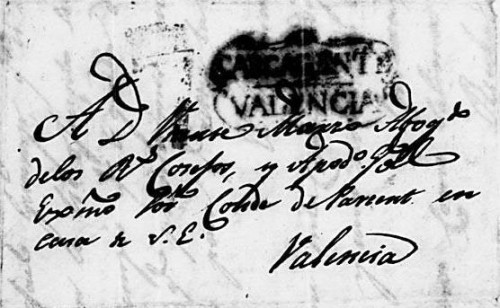 CARCAGENTE
VALENCIA
A D. Mario Abog.do
de los R.s Consejos, y Apod.do
Exp̃mo Sor. Conde de Parcent en
casa de S. E.
Valencia